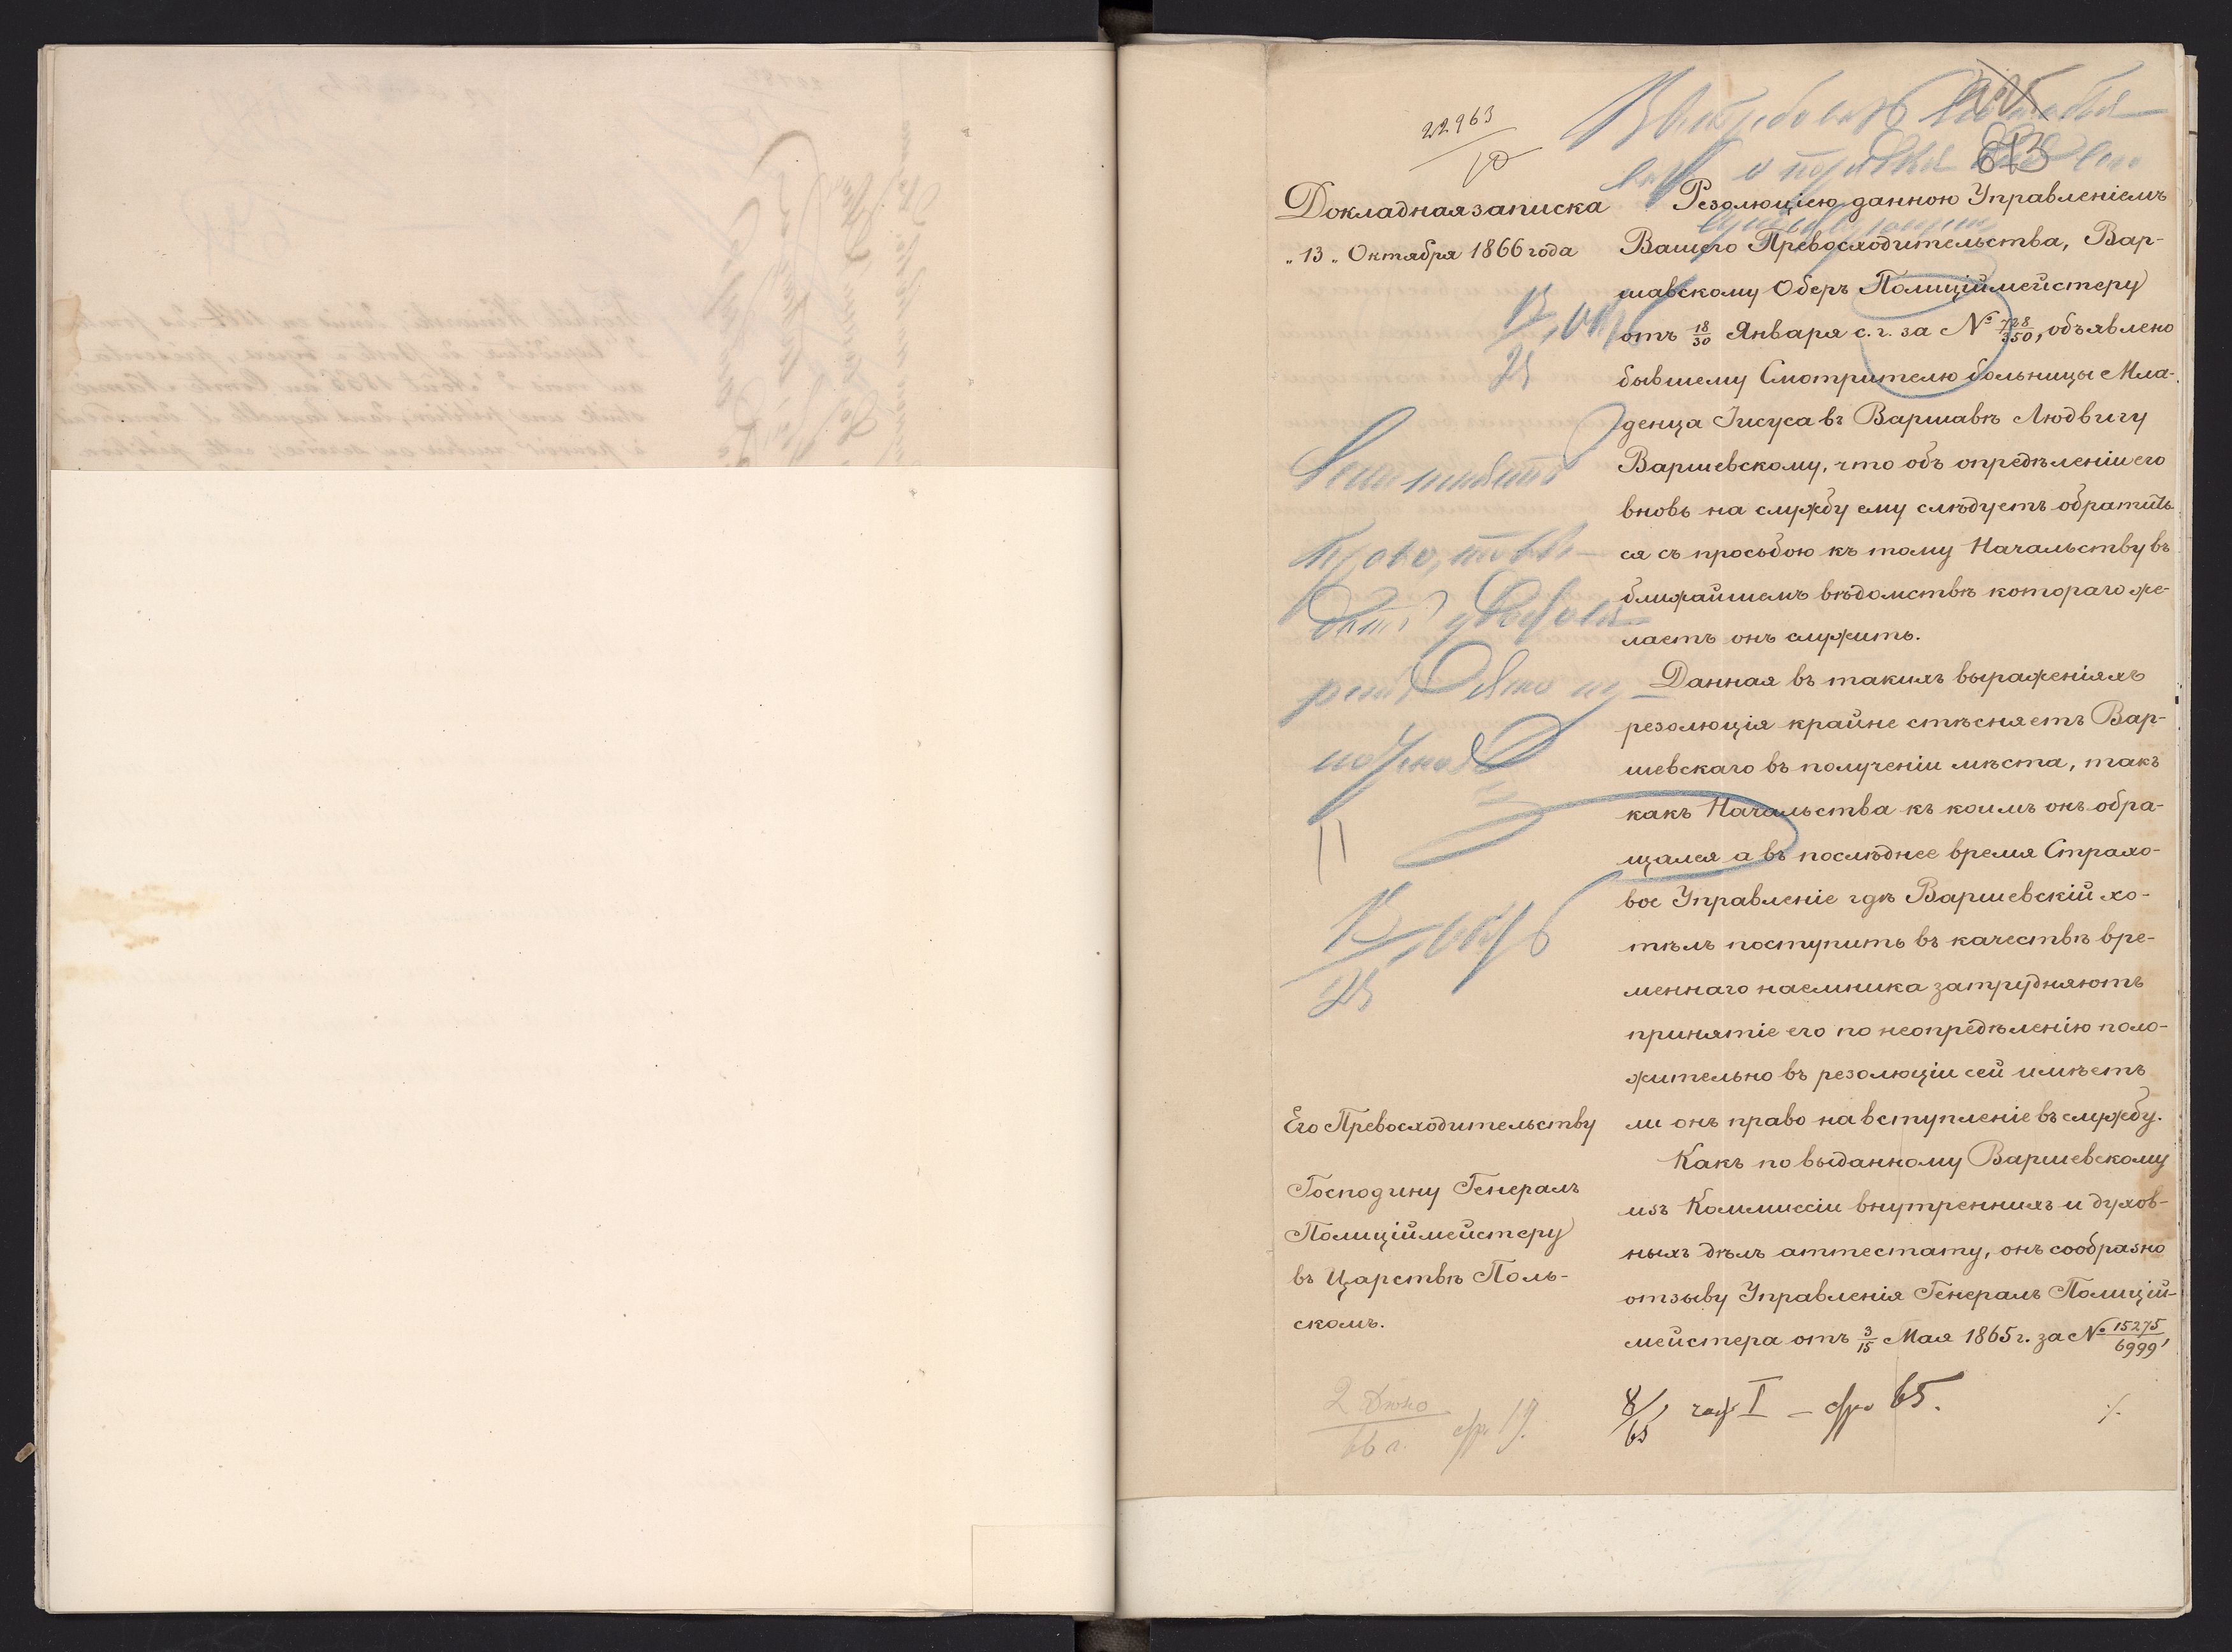 22963
10
83
Докладная записка
„13„ Октября 1866 года
Резолюціею данною Управленіемъ
Вашего Превосходительства, Вар-
шавскому Оберъ Полиціймейстеру
отъ 18/30 Января с. г. за № 728/350, объявлено
бывшему Смотрителю больницы Мла-
денца Іисуса въ Варшавѣ Людвигу
Варшевскому, что объ опредѣленіи его
вновь на службу ему слѣдуетъ обратить-
ся съ просьбою къ тому Начальству въ
ближайшемъ вѣдомствѣ котораго же-
лаетъ онъ служить.
Данная въ такихъ выраженіяхъ
резолюція крайне стѣсняетъ Вар-
шевскаго въ полученіи мѣста, такъ
какъ Начальства къ коимъ онъ обра-
щался а въ послѣднее время Страхо-
вое Управленіе гдѣ Варшевскій хо-
тѣлъ поступить въ качествѣ вре-
меннаго наемника затрудняютъ
принятіе его по неопредѣленію поло-
жительно въ резолюціи сей имѣетъ
ли онъ право на вступленіе въ службу.
Какъ по выданному Варшевскому
изъ Коммиссіи внутреннихъ и духов-
ныхъ дѣлъ аттестату, онъ сообразно
отзыву Управленія Генералъ Полицій-
мейстера отъ 3/15 Мая 1865 г. за № 15275/6999,
Его Превосходительству
Господину Генералъ
Полиціймейстеру
въ Царствѣ Поль-
скомъ.
8/65, част I – стр 65.
66 г. стр 19.